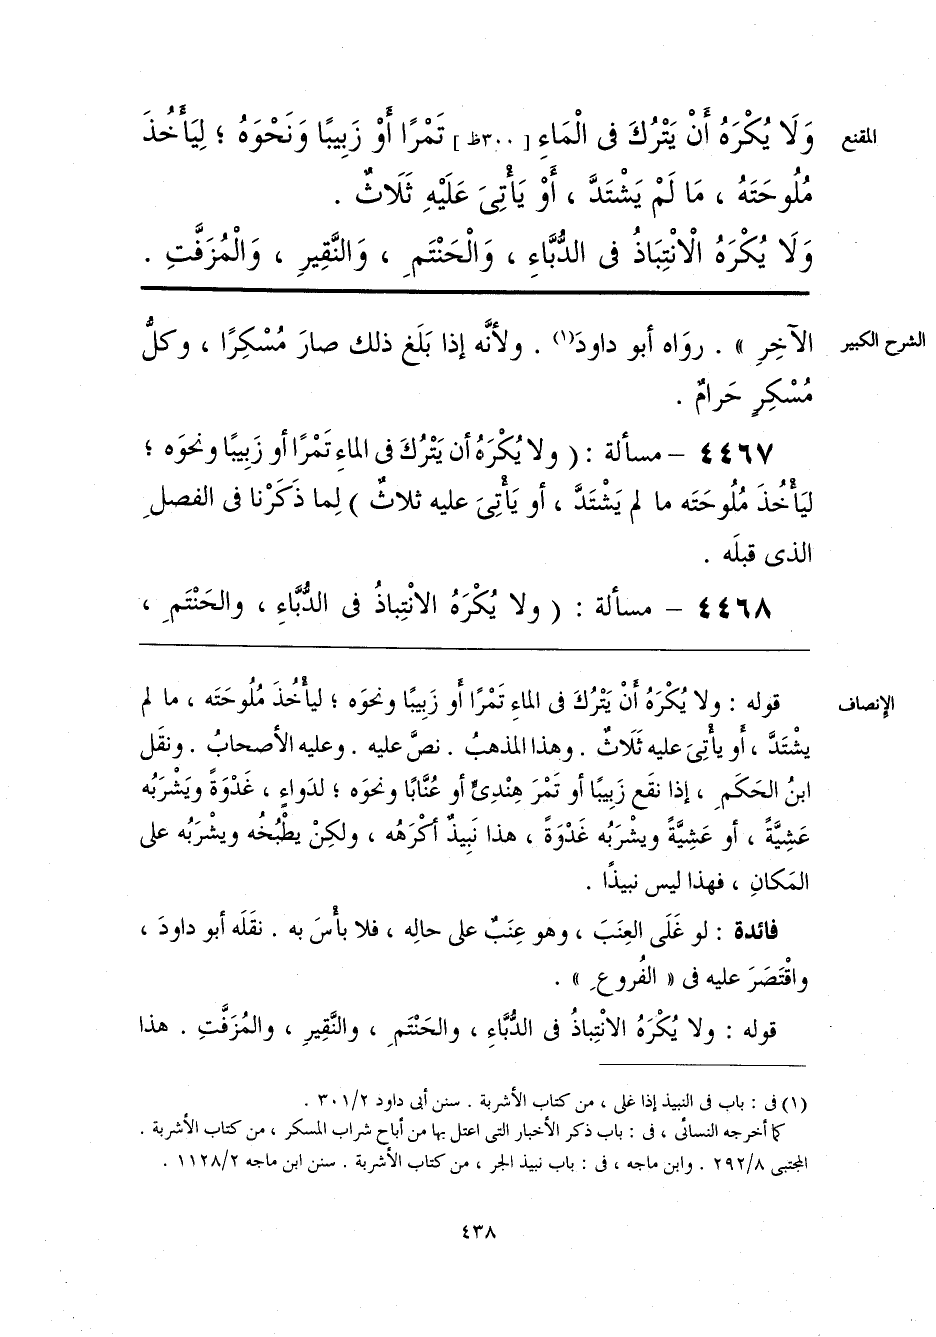 المقنع وَلَا يُكْرَهُ أَنْ يَتْرُكَ فى الْمَاءِ [ ٣٠٠ظ ] تَمْرًا أَوْ زَبِيبًا وَنَحْوَهُ ؛ لِيَأْخُذَ
مُلُوحَتَهُ ، مَا لَمْ يَشْتَدَّ ، أَوْ يَأْتِىَ عَلَيْهِ ثَلَاثٌ .
وَلَا يُكْرَهُ الْانْتِبَاذُ فى الدُّبَّاءِ ، وَالْحَنْتَمِ ، وَالنَّقِيرِ ، وَالْمُزَفَّتِ .
الشرح الكبير الآخِرِ » . روَاه أبو داودَ(١) . ولأنَّه إذا بَلَغ ذلك صارَ مُسْكِرًا ، وكلُّ
مُسْكِرٍ حَرامٌ .
٤٤٦٧ – مسألة : ( ولا يُكْرَهُ أن يَتْرُكَ فى الماءِ تَمْرًا أو زَبِيبًا ونحوَه ؛
ليَأْخُذَ مُلُوحَتَه ما لم يَشْتَدَّ ، أو يَأْتِىَ عليه ثلاثٌ ) لِما ذَكَرْنا فى الفصلِ
الذى قبلَه .
٤٤٦٨ – مسألة : ( ولا يُكْرَهُ الانْتِباذُ فى الدُّبَّاءِ ، والحَنْتَمِ ،
الإنصاف قوله : ولا يُكْرَهُ أَنْ يَتْرُكَ فى الماءِ تَمْرًا أو زَبِيبًا ونحوَه ؛ ليأْخُذَ مُلُوحَتَه ، ما لم
يشْتَدَّ ، أو يأْتِىَ عليه ثَلَاثٌ . وهذا المذهبُ . نصَّ عليه . وعليه الأصحابُ . ونقَل
ابنُ الحَكَمِ ، إذا نقَع زَبِيبًا أو تَمْرَ هِنْدِىٍّ أو عُنَّابًا ونحوَه ؛ لدَواءٍ ، غَدْوَةً ويَشْرَبُه
عَشِيَّةً ، أو عَشِيَّةً ويشْرَبُه غَدْوَةً ، هذا نَبِيذٌ أكْرَهُه ، ولكِنْ يطْبُخُه ويشْرَبُه على
المَكانِ ، فهذا ليس نبيذًا .
فائدة : لو غَلَى العِنَبَ ، وهو عِنَبٌ على حالِه ، فلا بأْسَ به . نقَلَه أبو داودَ ،
واقْتَصَرَ عليه فى « الفُروعِ » .
قوله : ولا يُكْرَهُ الانْتِباذُ فى الدُّبَّاءِ ، والحَنْتَمِ ، والنَّقِيرِ ، والمُزَفَّتِ . هذا
(١) فى : باب فى النبيذ إذا غلى ، من كتاب الأشربة . سنن أبى داود ٣٠١/٢ .
كما أخرجه النسائى ، فى : باب ذكر الأخبار التى اعتل بها من أباح شراب المسكر ، من كتاب الأشربة .
المجتبى ٢٩٢/٨ . وابن ماجه ، فى : باب نبيذ الجر ، من كتاب الأشربة . سنن ابن ماجه ١١٢٨/٢ .
٤٣٨